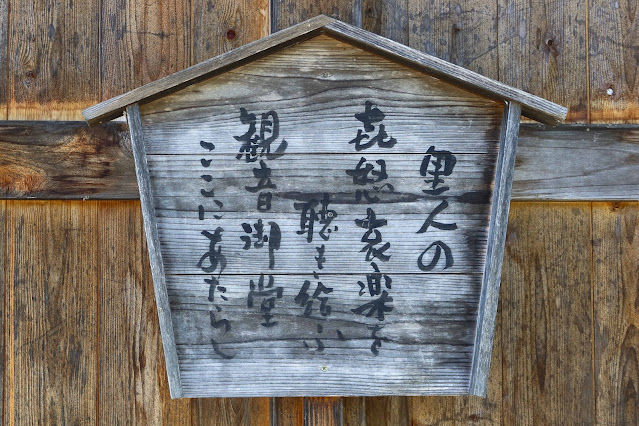 里人の
㐂怒哀楽を
聴き給ふ
観音御堂
ここにあたらし